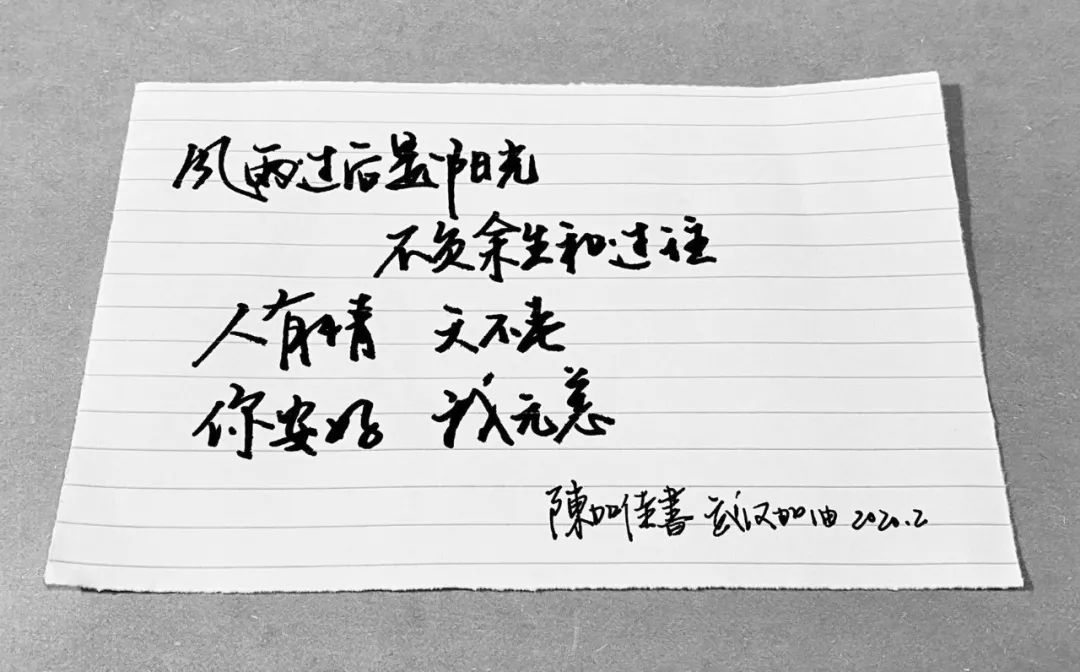 風雨过后是阳光
不负余生和过往
人有情 天不老
你安好 我无恙
陳加佳書 武汉加油 2020.2